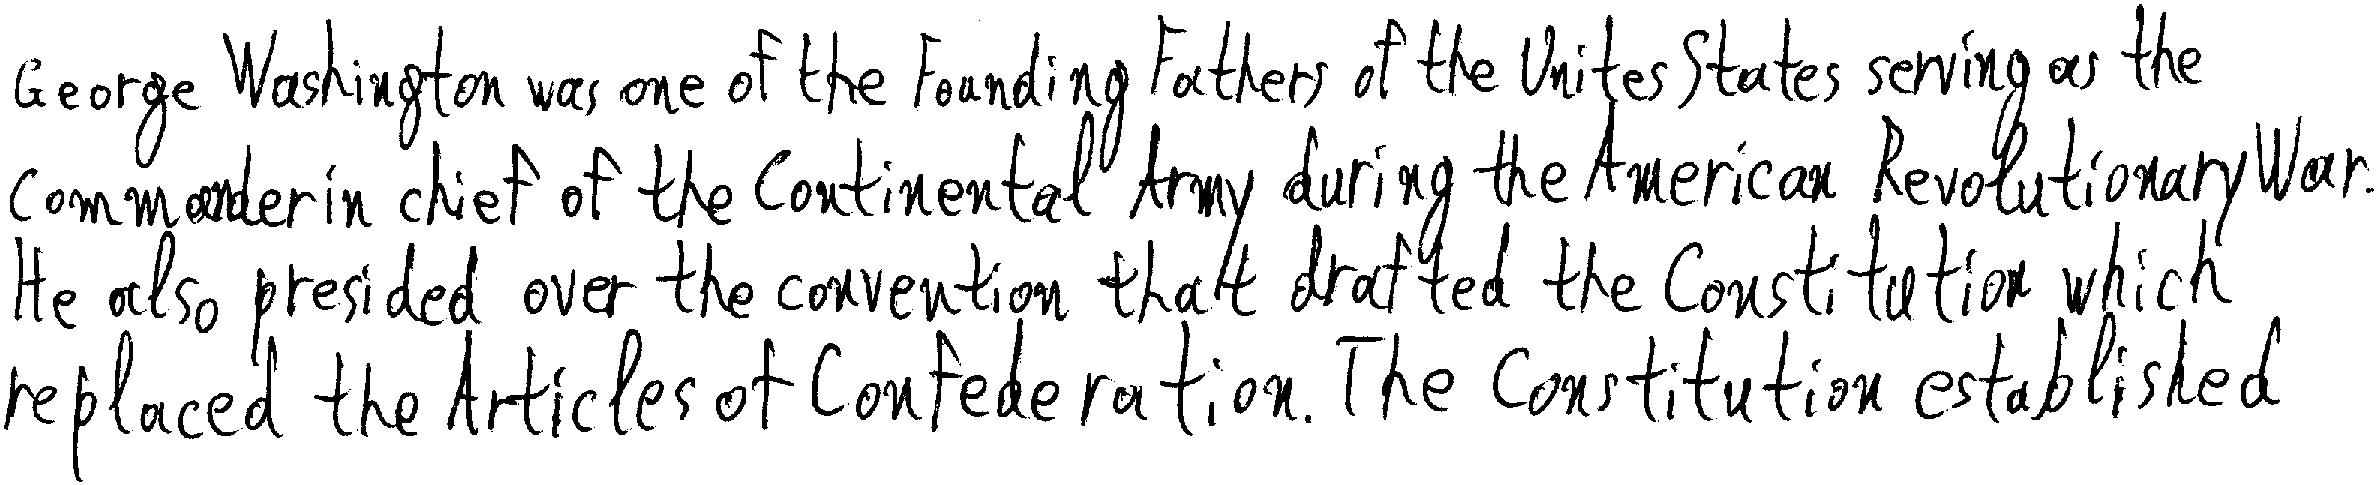 George Washington was one of the Founding Fathers of the Unites States serving as the
Commander in chief of the Continental Army during the American Revolutionary War.
He also presided over the convention that drafted the Constitution which
replaced the Articles of Confederation. The Constitution established